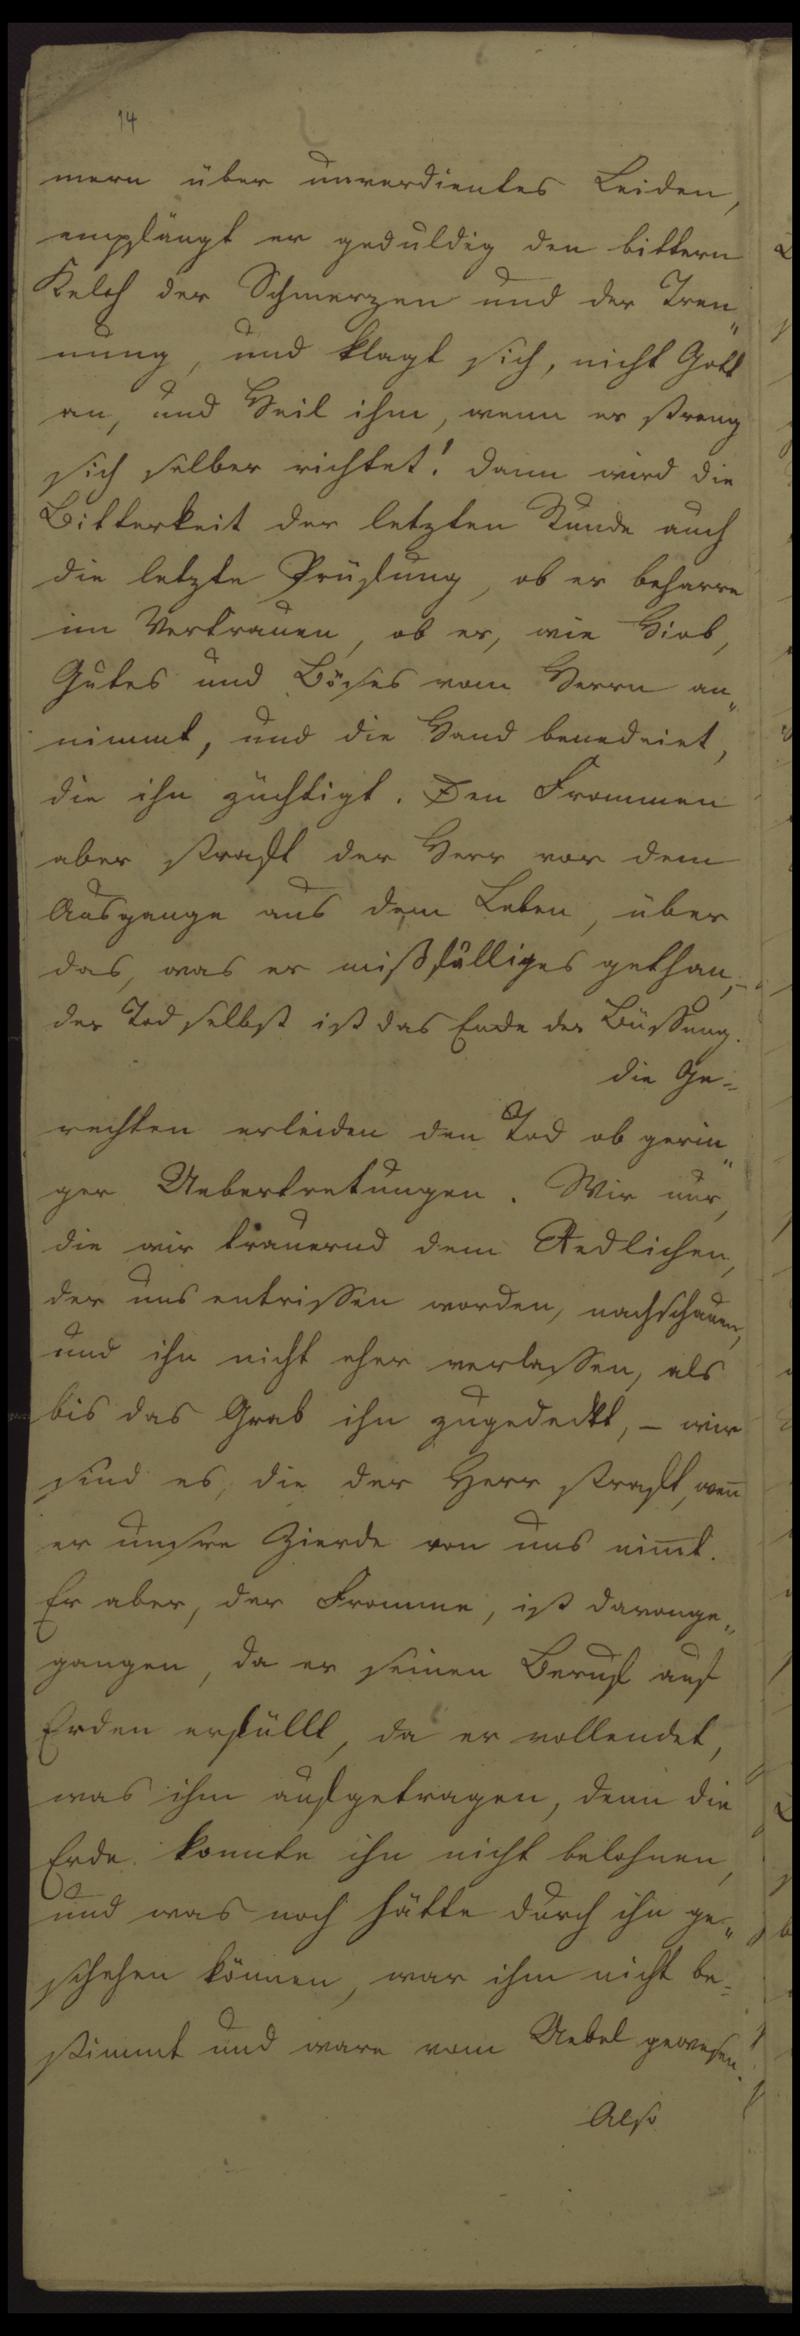 14
mern über unverdientes Leiden,
empfängt er geduldig den bittern
Kelch der Schmerzen und der Tren„
nung, und klagt sich, nicht Gott
an, und Heil ihm, wenn er streng
sich selber richtet! dann wird die
Bitterkeit der letzten Stunde auch
die letzte Prüfung, ob er beharre
im Vertrauen, ob er, wie Hiob,
Gutes und Böses vom Herrn an„
nimmt, und die Hand benedeiet,
die ihn züchtigt. Den Frommen
aber straft der Herr vor dem
Ausgange aus dem Leben, über
das, was er mißfälliges gethan,–
der Tod selbst ist das Ende der Büssung.
die Ge-
rechten erleiden den Tod ob gerin„
ger Uebertretungen. Wir nur,
die wir trauernd dem Redlichen,
der uns entrissen worden, nachschauen,
und ihn nicht eher verlassen, als
bis das Grab ihn zugedeckt, – wir
sind es, die der Herr straft, wen̄
er unsre Zierde von uns nim̄t.
Er aber, der Fromme, ist davonge„
gangen, da er seinen Beruf auf
Erden erfüllt, da er vollendet,
was ihm aufgetragen, denn die
Erde konnte ihn nicht belohnen,
und was noch hätte durch ihn ge„
schehen können, war ihm nicht be-
stimmt und wäre vom Uebel gewesen.
Also